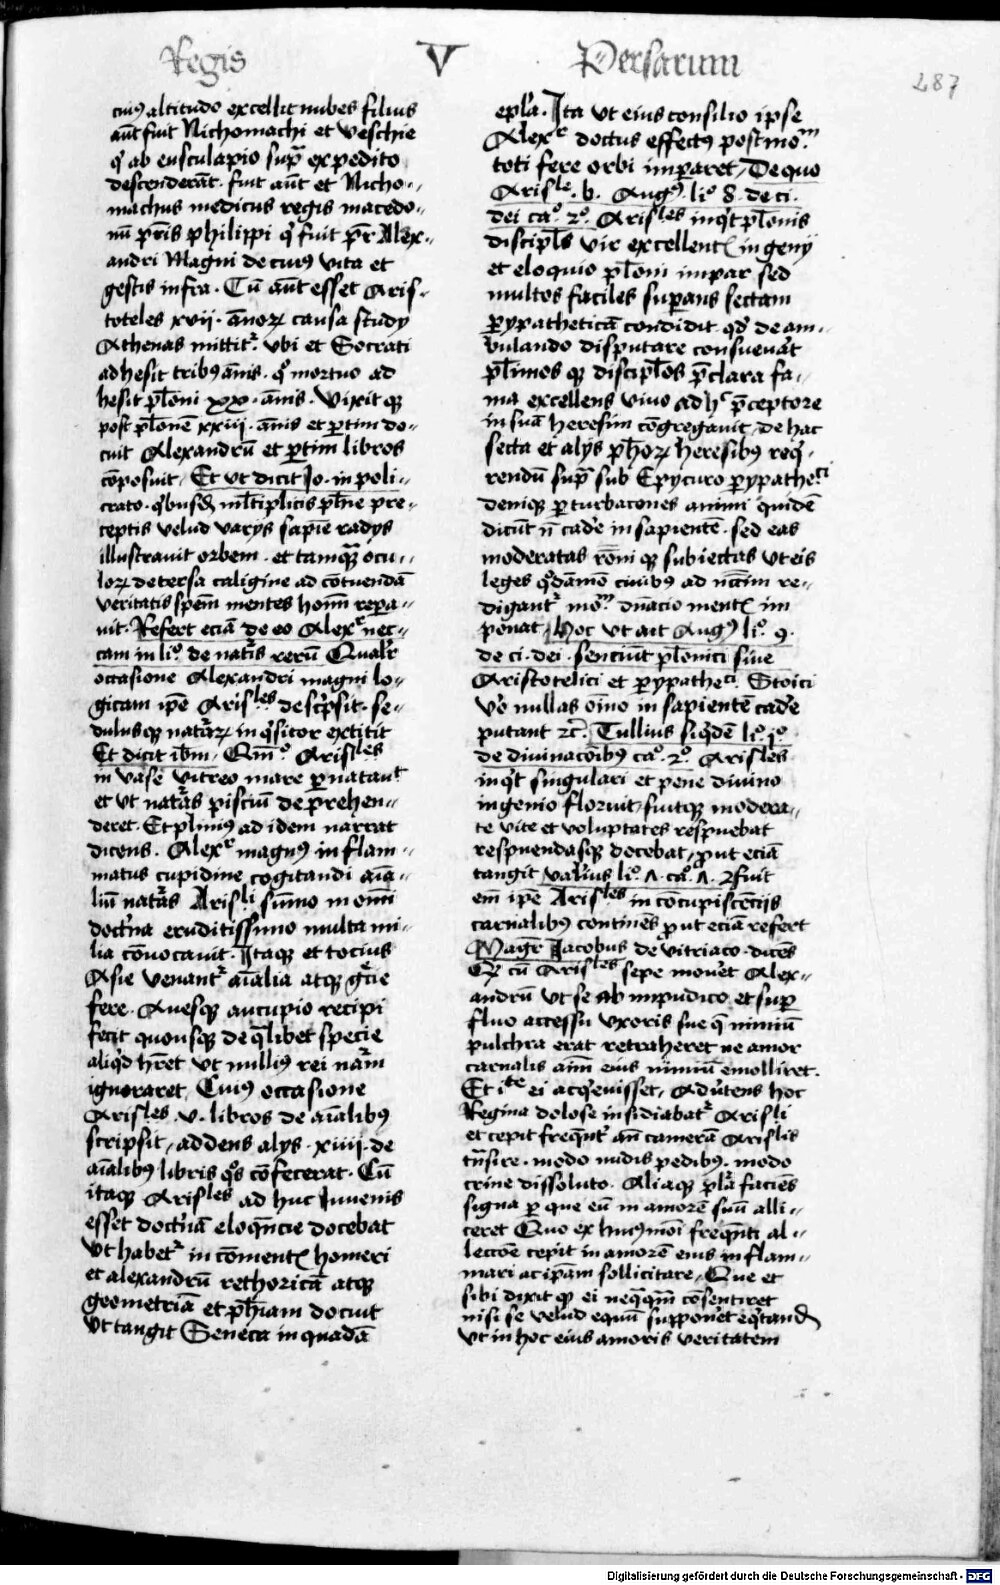 Regis V Persarum
287
cuiꝰ altitudo excellit nubes filius
aūt fuit Nichomachi et Veschie
qͥ ab eusculapio sup̄ expedito
descenderāt. fuit aūt et Nicho-
machus medicus regis macedo-
nū p̄ris philippi qͥ fuit p̄r Alex-
andri Magni de cuiꝰ vita et
gestis infra. Cū aūt esset Aris-
toteles xvii. ānoꝝ causa study
Athenas mittitᷣ. vbi et Socrati
adhesit tribꝰ ānis. qͦ mortuo ad
hesit pl̄oni xx. ānis. Vixit qꝫ
post pl̄onē xxiij. ānis et ꝑtim do-
cuit Alexandrū et ꝑtim libros
cōposuit, Et vt dicit Jo. in poli-
crato. qͥbusdā ml̄tiplicis ph̄ie pre-
ceptis velud varijs sapīe radijs
illustrauit orbem. et tamquā ocu-
loꝝ detersa caligine ad cōtuendā
veritatis spem mentes homī repa-
uit. Refert eciā de eo Alexͬ nec-
cam in liͦ. de natᷣis rerū Qualr̄
occasione Alexandri magni lo-
gicam ip̄e Arisˡᵉˢ descͥpsit. se-
dulusqꝫ natᷣaꝝ inqͥsitor extitit
Et dicit ib̄m, Qm̄ͦ Arisˡᵉˢ
in vase vitreo mare ꝑnatauͭ
et vt natᷣas pisciū deprehen-
deret. Et pliniꝰ ad idem narrat
dicens. Alexͬ magnꝰ inflam-
matus cupidine cogitandi aīa-
liū natᷣas Arisˡⁱ sūmo in omī
doctͥna eruditissimo multa mi-
lia cōuocauit. Itaqꝫ et tocius
Asie venantᷣ aīalia atqꝫ
fere. Auesqꝫ aucupio recipi
fecit quousqꝫ de qͣlibet specie
aliqͥd hr̄et vt nulliꝰ rei nām
ignoraret, Cuiꝰ occasione
Arisˡᵉˢ. v. libros de aīalibꝰ
scripsit, addens alijs. xiiij. de
aīalibꝰ libris qͦs cōfecerat. Cū
itaqꝫ Arisˡᵉˢ adhuc Iuuenis
esset doctͥnā eloqn̄cie docebat
vt habetᷣ in cōmentꝭ homeri
et alexandrū rethoricā atqꝫ
geometriā et ph̄iam docuit
vt tangit Seneca in quadā
epl̄a. Ita vt eius consilio ipse
Alexͬ doctus effectꝰ postmoͫ
toti fere orbi imꝑaret, De quo
Arisˡᵉ. b. Augꝰ liͦ 8. de ci.
dei caͦ. 2ͦ. Arisˡᵉˢ inqͥt pl̄onis
discipl̄s vir excellentꝭ ingenij
et eloquio pl̄oni impar sed
multos faciles suꝑans sectam
ꝑypatheticā condidit qd̄ deam-
bulando disputare consueuāt
pl̄imos qꝫ discipl̄os p̄clara fa-
ma excellens viuo adhͨ p̄ceptore
in suā heresim cōgregauit, de hac
secta et alijs ph̄oꝝ heresibꝰ reqͥ-
rendū sup̄ sub Epycuro ꝑypatheᶜⁱ
deniqꝫ ꝑturbacones animi quidē
dicūt nō cade in sapientē. sed eas
moderatas rōni qꝫ subiectas vt eis
leges qͦdāmō ciuibꝰ ad nccm̄ re-
digantᷣ moͫ dn̄acio mentꝭ im
ponat, Hoc vt ait Augꝰ liͦ. 9.
de ci. dei. senciūt pl̄onici siue
Aristotelici et ꝑypatheᶜⁱ. Stoici
vͦo nullas oīno in sapientē cade
putant ⁊c̄. Tullius siqͥdē liͦ. iͦ.
de diuinacōibꝰ caͦ. 2ͦ. Arisˡᵉˢ
inqͥt singulari et pene diuino
ingenio floruit, fuitqꝫ modera-
te vite et voluptates respuebat
respuendasqꝫ docebat, ꝓut eciā
tangit valꝰius liͦ. ʌ. caͦ. ʌ. fuit
em̄ ip̄e Arisˡᵉˢ in cōcupiscencijs
carnalibꝰ continēs ꝓut eciā refert
Magr̄ Jacobus de vitriaco. dicēs
Qꝫ cū Arisˡᵉˢ sepe moūet Alex-
andrū vt se ab impudico et suꝑ
fluo accessu vxoris sue qͣ nimiū
pulchra erat retraheret ne amor
carnalis aīm eius nimiū emolliret.
Et iᵗᵉ ei acqͥeuisset, Adūtens hoc
Regina dolose insidiabatᷣ Arisˡⁱ
et cepit freqn̄tᷣ añ camerā Arisˡⁱs
trn̄sire. modo nudis pedibꝰ. modo
crine dissoluto. Aliaqꝫ pl̄a faciēs
signa ꝑ que eū in amorē suū alli-
ceret Quo ex huiꝰmōi freqn̄ti al-
leccōe cepit in amorē eius inflam-
mari ac ip̄am sollicitare, Que et
sibi dixit qꝫ ei neqͣqͣm cōsentiret
nisi se velud equū suppoūet eqͥtandū
vt in hoc eius amoris veritatem
Digitalisierung gefördert durch die Deutsche Forschungsgemeinschaft - DFG